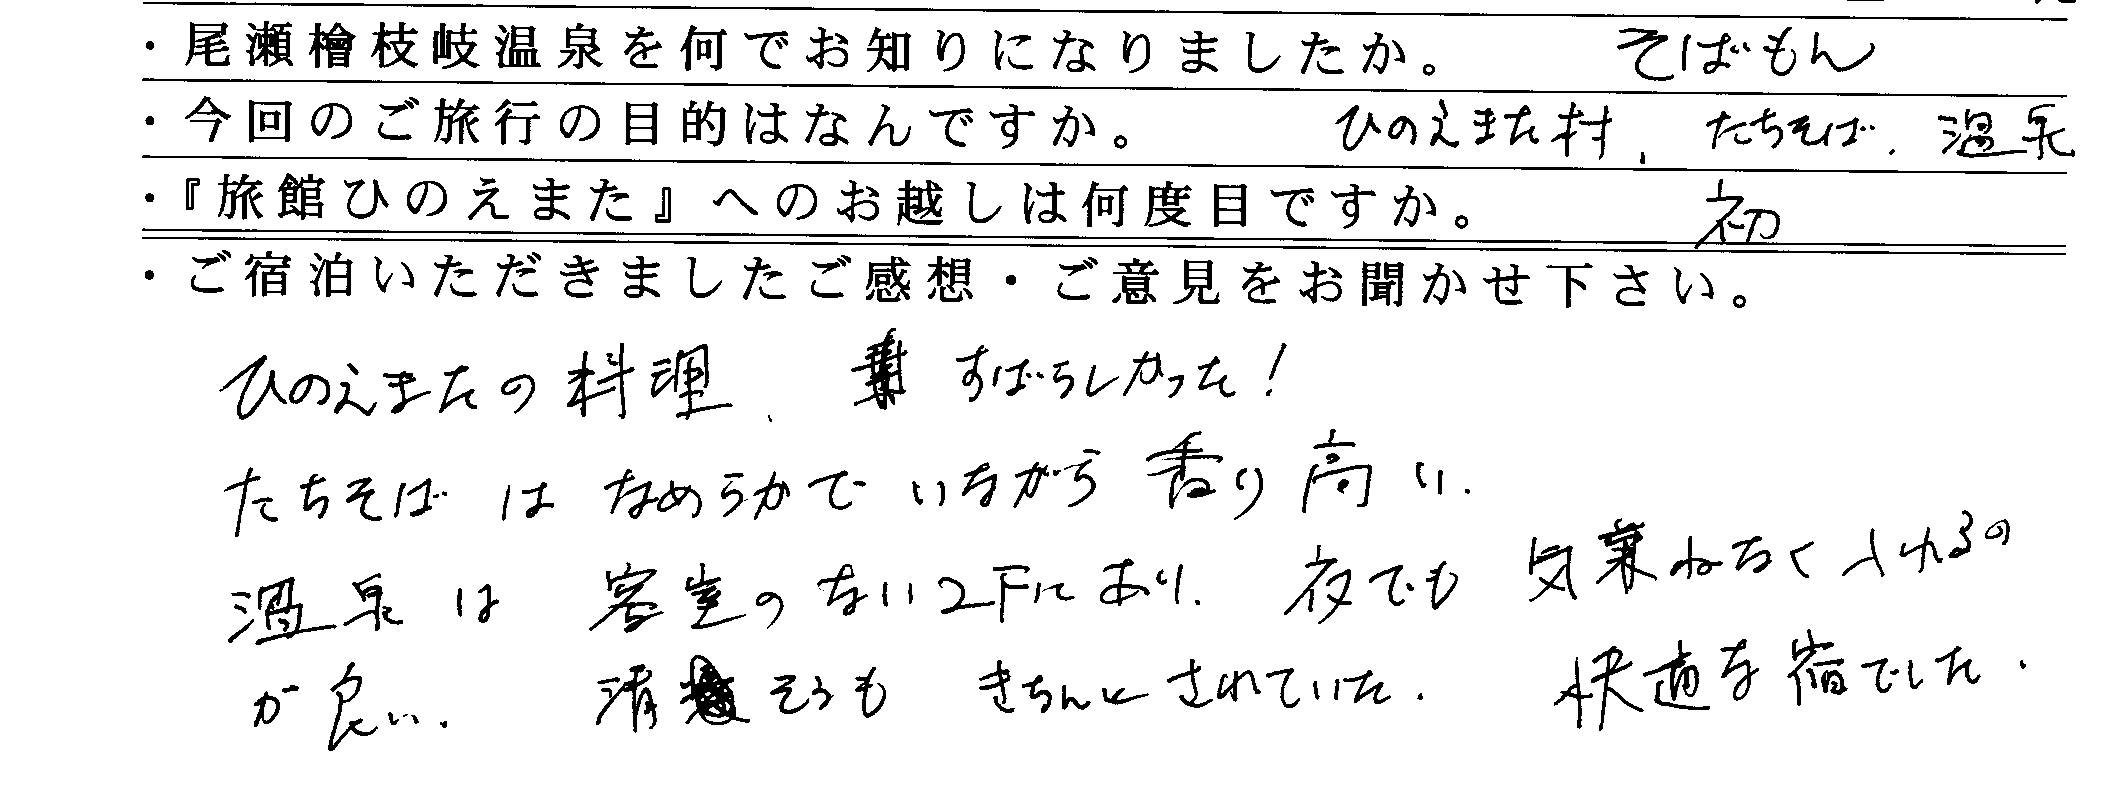 ・尾瀬檜枝岐温泉を何でお知りになりましたか。 そばもん
・今回のご旅行の目的はなんですか。 ひのえまた村、たちそば、温泉
・『旅館ひのえまた』へのお越しは何度目ですか。 初
・ご宿泊いただきましたご感想・ご意見をお聞かせ下さい。
ひのえまたの料理、すばらしかった!
たちそばはなめらかでいながら香り高い。
温泉は客室のない2Fにあり、夜でも気兼ねなく入れるの
が良い。清そうもきちんとされていた。快適な宿でした。